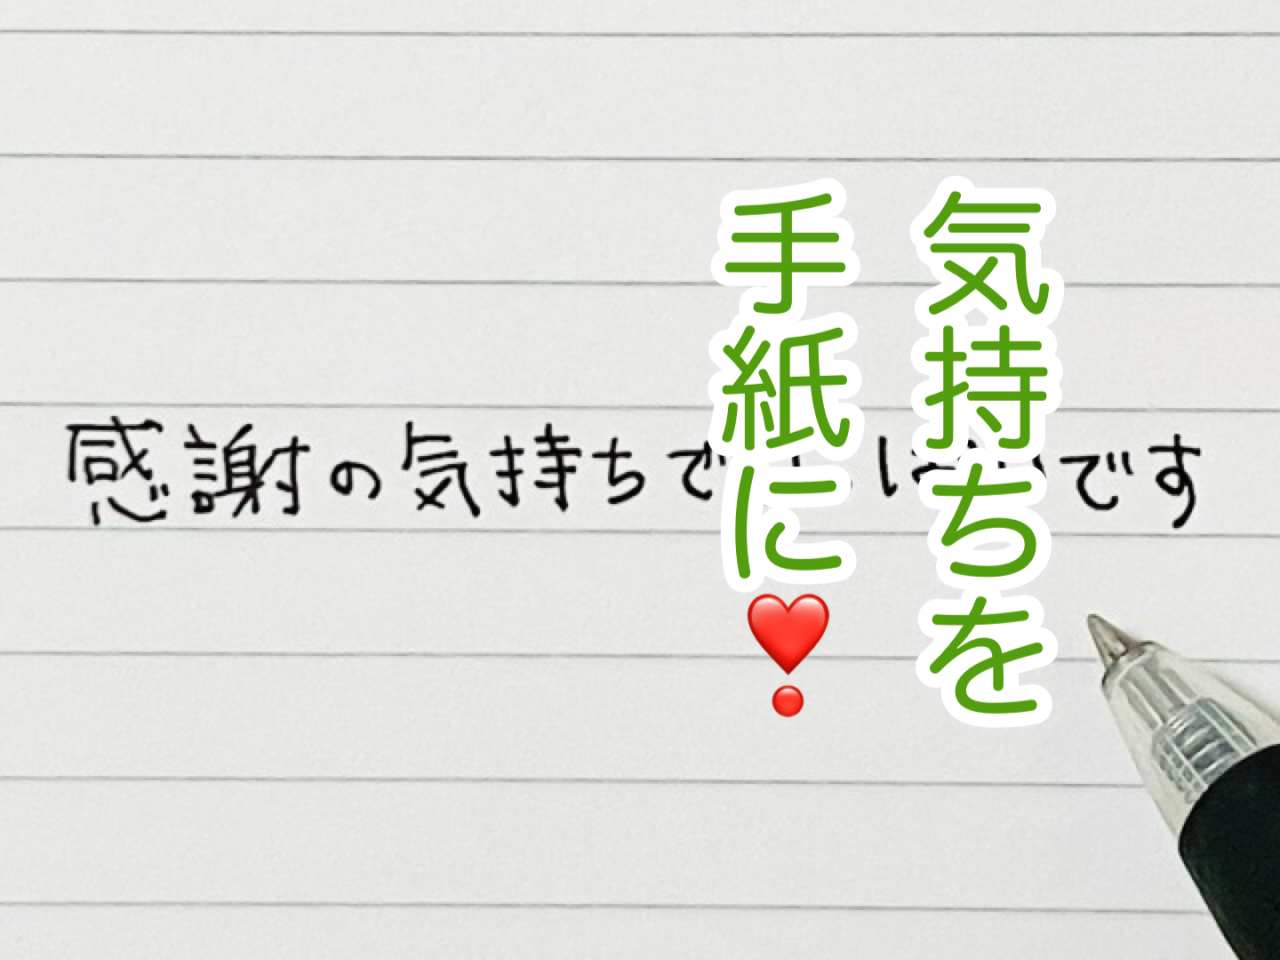 感謝の気持ちで です
気持ちを
手紙に❣